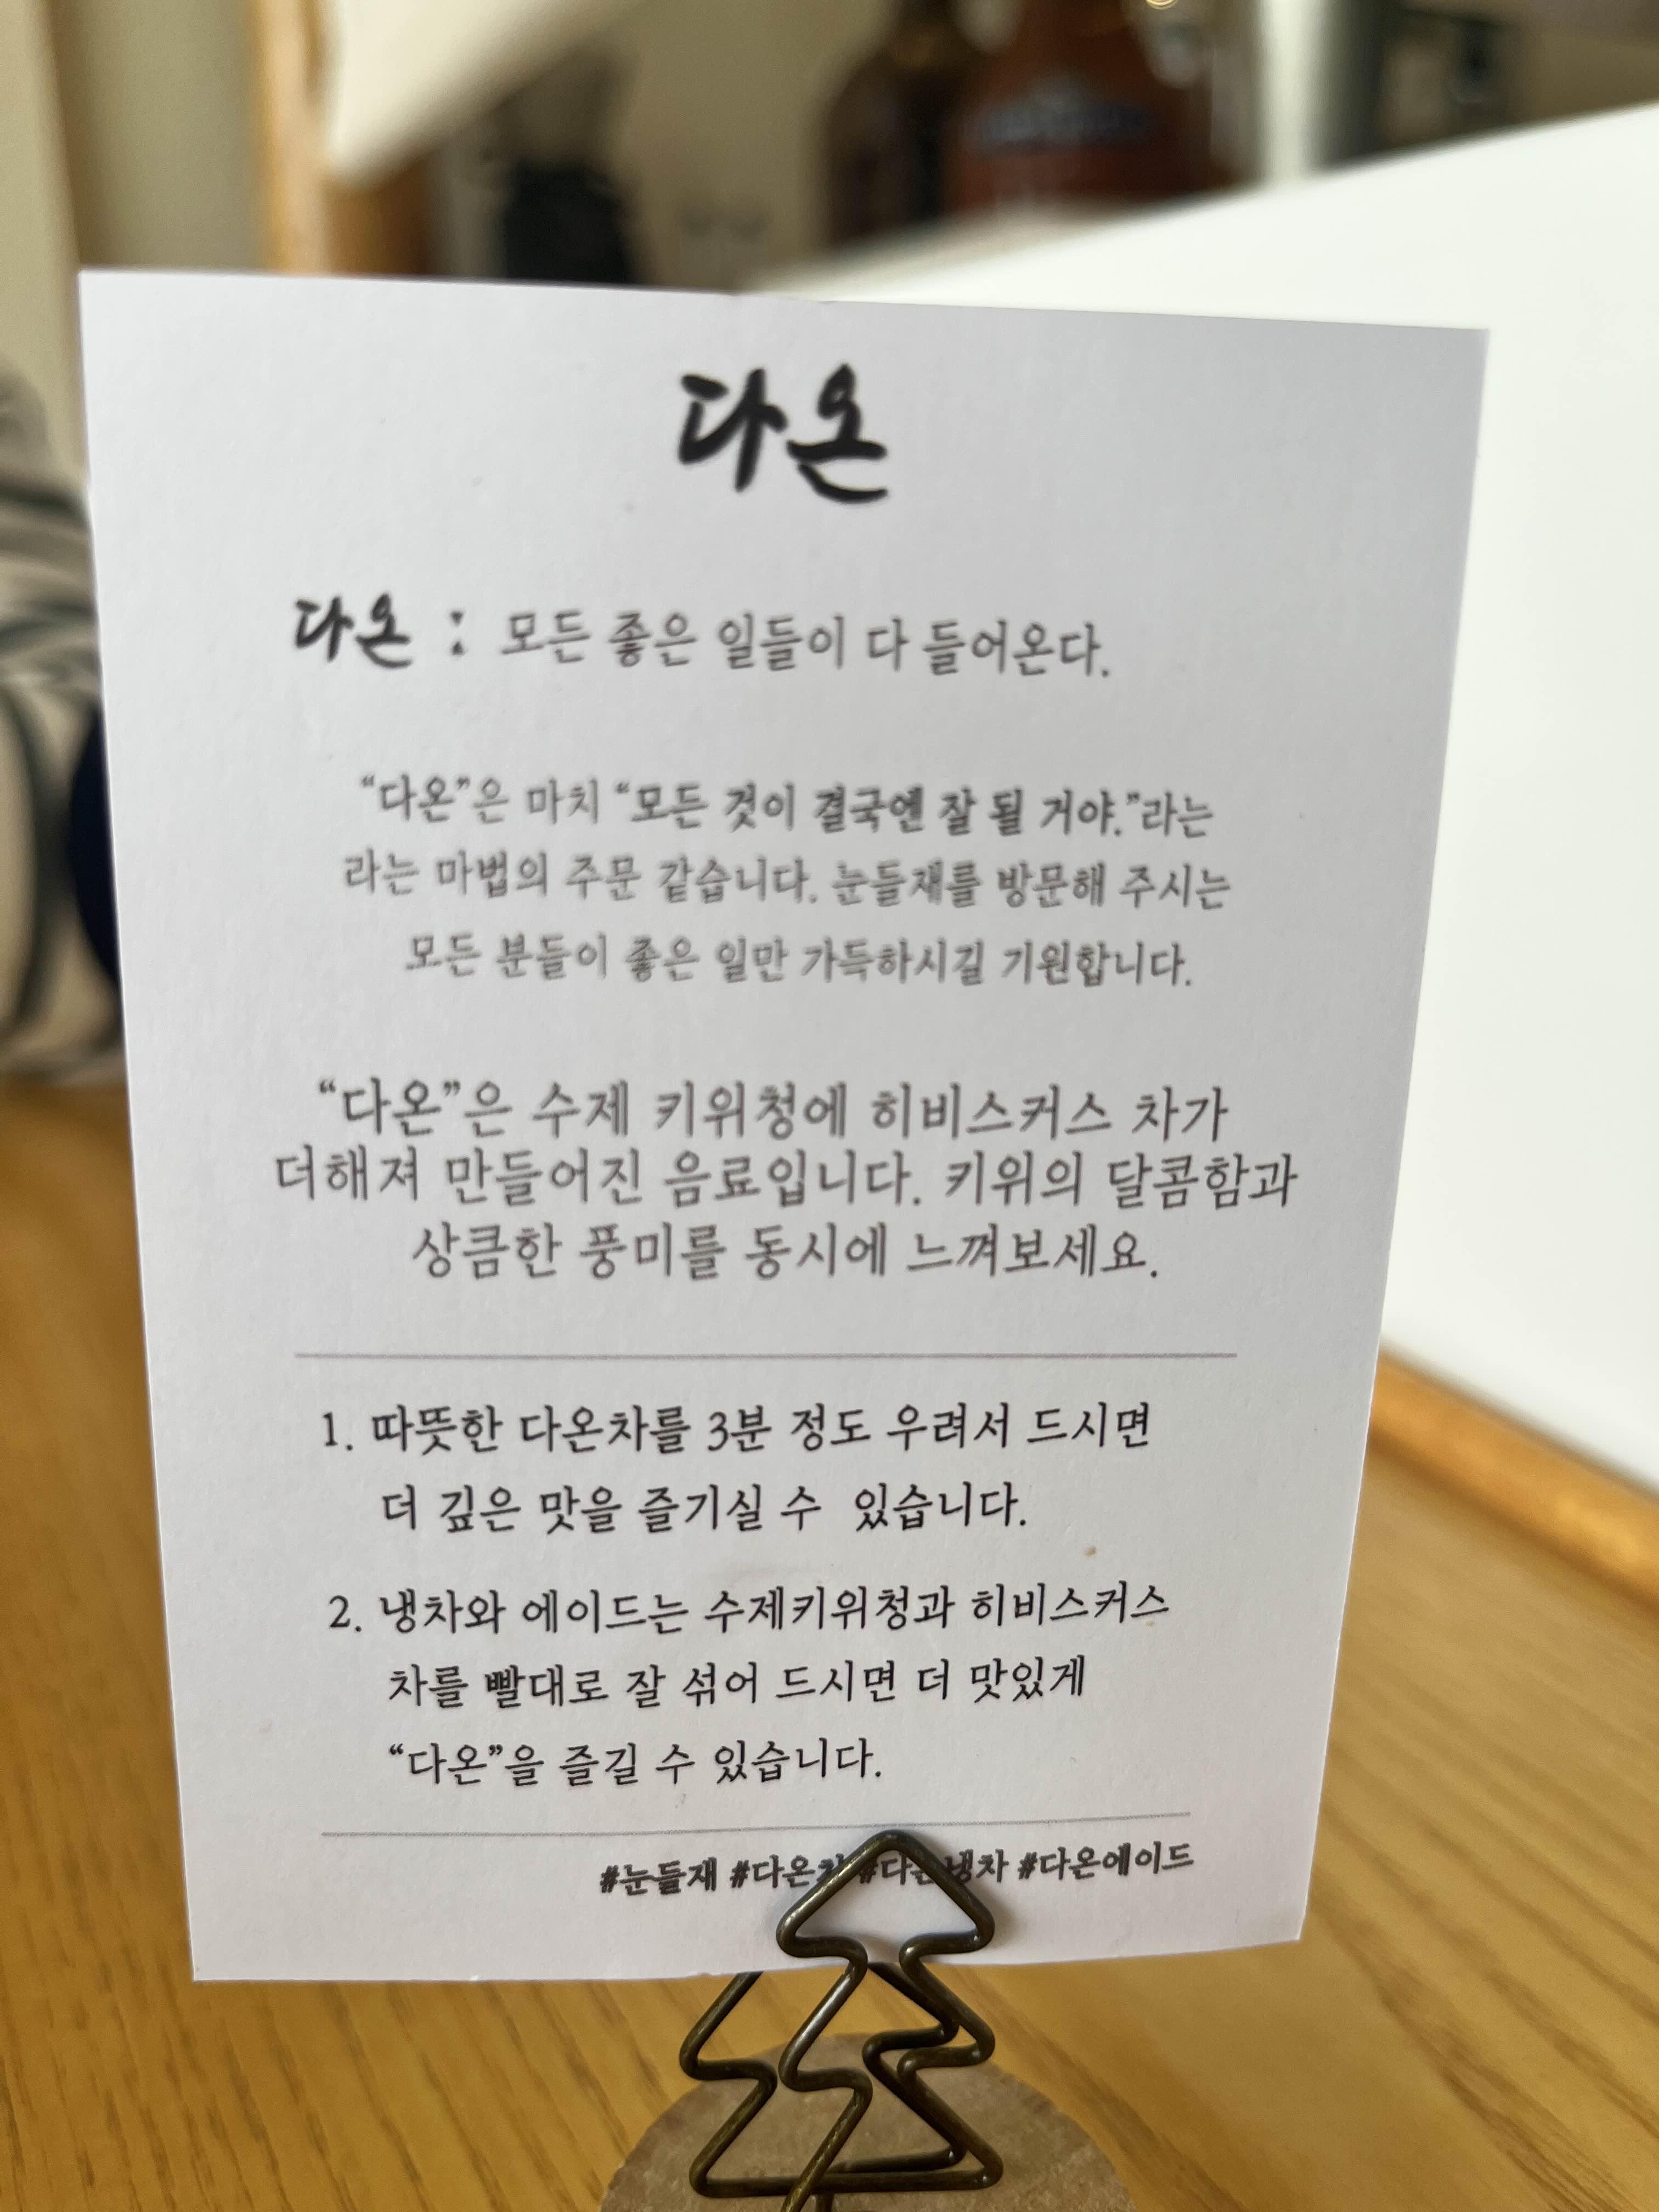 다온
다온 : 모든 좋은 일들이 다 들어온다.
“다온”은 마치 “모든 것이 결국엔 잘 될 거야.”라는
라는 마법의 주문 같습니다. 눈들재를 방문해 주시는
모든 분들이 좋은 일만 가득하시길 기원합니다.
“다온”은 수제 키위청에 히비스커스 차가
더해져 만들어진 음료입니다. 키위의 달콤함과
상큼한 풍미를 동시에 느껴보세요.
1. 따뜻한 다온차를 3분 정도 우려서 드시면
더 깊은 맛을 즐기실 수 있습니다.
2. 냉차와 에이드는 수제키위청과 히비스커스
차를 빨대로 잘 섞어 드시면 더 맛있게
“다온”을 즐길 수 있습니다.
#눈들재 #다온차 #다온냉차 #다온에이드